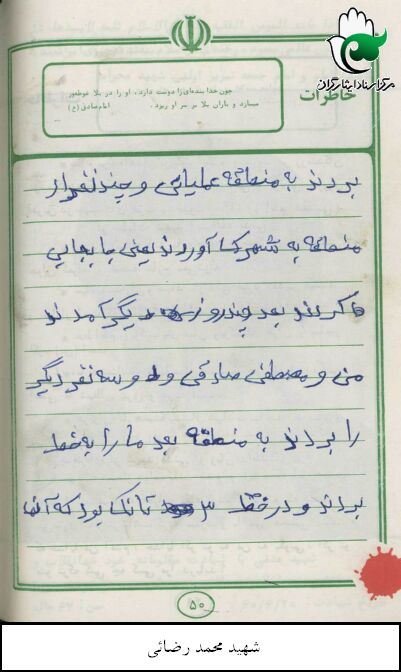 مرکز اسناد ایثارگران
خاطرات
چون خدا بنده‌ای را دوست دارد، او را در بلا غوطه‌ور
میسازد و باران بلا بر سر او ریزد. امام صادق (ع)
بردند به منطقه عملیاتی و چند نفر از
منطقه به شهرک آوردند یعنی جابجایی
کردند بعد چند روز دیگر آمدند
من و مصطفی صادقی و سه نفر دیگر
را بردند به منطقه بعد ما را به خط
بردند و در خط ۳ تانک بود که آنها
۵۰
شهید محمد رضائی